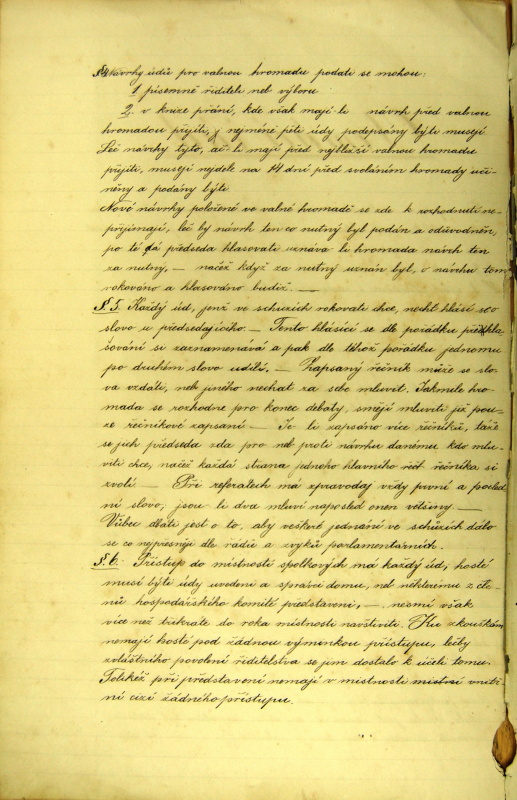 §4 Návrhy údů pro valnou hromadu podati se mohou:
1 písemně řiditeli neb výboru
2. v knize přání, kde však mají-li návrh před valnou
hromadou přijíti, nejméně pěti údy podepsány býti musejí
Leč návrhy tyto, ač-li mají před nejbližší valnou hromadu
přijíti, musejí nejdéle na 14 dní před svoláním hromady uči-
něny a podány býti
Nové návrhy položené ve valné hromadě se zde k rozhodnutí ne-
přijímají, leč by návrh ten co nutný byl podán a odůvodněn,
po té dá předseda hlasovati uznává li hromada návrh ten
za nutný, — načež když za nutný uznán byl, o návrhu tom
rokováno a hlasováno budiž. —
§ 5. Každý úd, jenž ve schůzích rokovati chce, nechť hlásí se o
slovo u předsedajícího. — Tento hlásící se dle pořádku přihla
šování si zaznamenává a pak dle téhož pořádku jednomu
po druhém slovo udílí. — Zapsaný řečník může se slo-
va vzdáti, neb jiného nechat za sebe mluvit. Jakmile hro-
mada se rozhodne pro konec debaty, smějí mluviti již pou-
ze řečníkové zapsaní — Je li zapsáno více řečníků, táže
se jich předseda zda pro neb proti návrhu danému kdo mlu-
viti chce, načež každá strana jednoho hlavního řečníka si
zvolí — Při referatech má zpravodaj vždy první a posled
ní slovo, jsou li dva mluví naposled onen většiny —
Vůbec dbáti jest o to, aby veškeré jednání ve schůzích dálo
se co nejpřesněji dle řádů a zvyků parlamentárních.
§. 6. Přístup do místností spolkových má každý úd, hosté
musí býti údy uvedeni a správci domu, neb některému z čle-
nů hospodářského komité představeni, — nesmí však
více než třikráte do roka místnosti navštíviti. Ku zkouškám
nemají hosté pod žádnou výminkou přístupu, lečby
zvláštního povolení řiditelstva se jim dostalo k účeli tomu.
Tolikéž při představení nemají v místnosti vnitř-
ní cizí žádného přístupu.